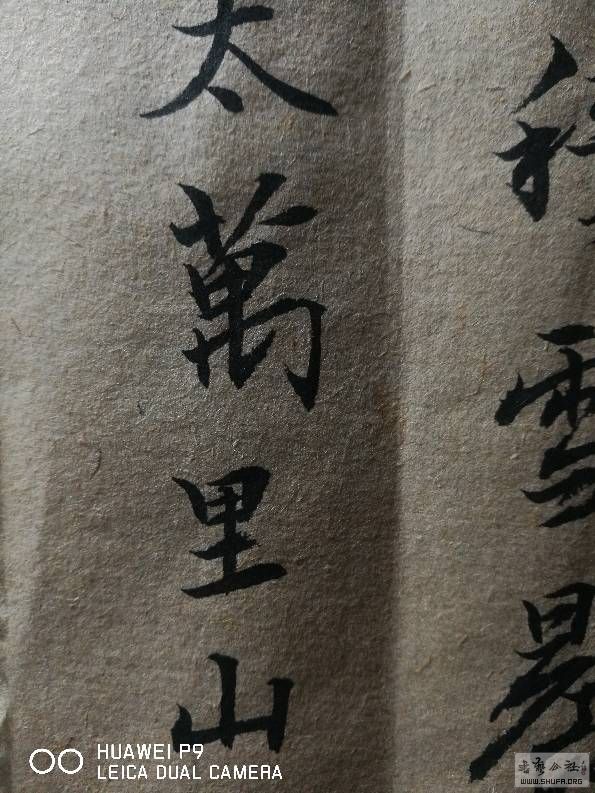 雪
太萬里山
HUAWEI P9
LEICA DUAL CAMERA
书艺公社
WWW.SHUFA.ORG